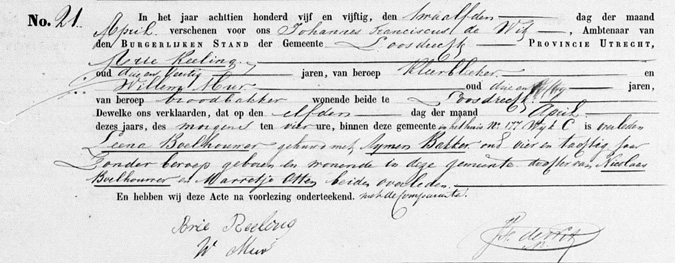 No. 21. In het jaar achttien honderd vijf en vijftig, den twaalfden dag der maand
April verschenen voor ons Johannes Franciscus de Wit, Ambtenaar van
den BURGERLIJKEN STAND der Gemeente Loosdrecht PROVINCIE UTRECHT,
Arie Reeling
oud drie en veertig jaren, van beroep en
Willem Muur oud drie en jaren,
van beroep broodbakker wonende beide te Loosdrecht
Dewelke ons verklaarden, dat op den elfden dag der maand April
dezes jaars, des morgens ten vier ure, binnen deze gemeente in het huis No. 177 Wijk C is overleden
Leena Boelhouwer gehuwd met Symen Bakker oud vier en taachtig jaar
zonder beroep geboren en wonende in deze gemeente dogter van Nicolaas
Boelhouwer en Marretje Otten beiden overleden.
En hebben wij deze Acte na voorlezing onderteekend. met de Comparanten.
Arie Reeling
W Muur